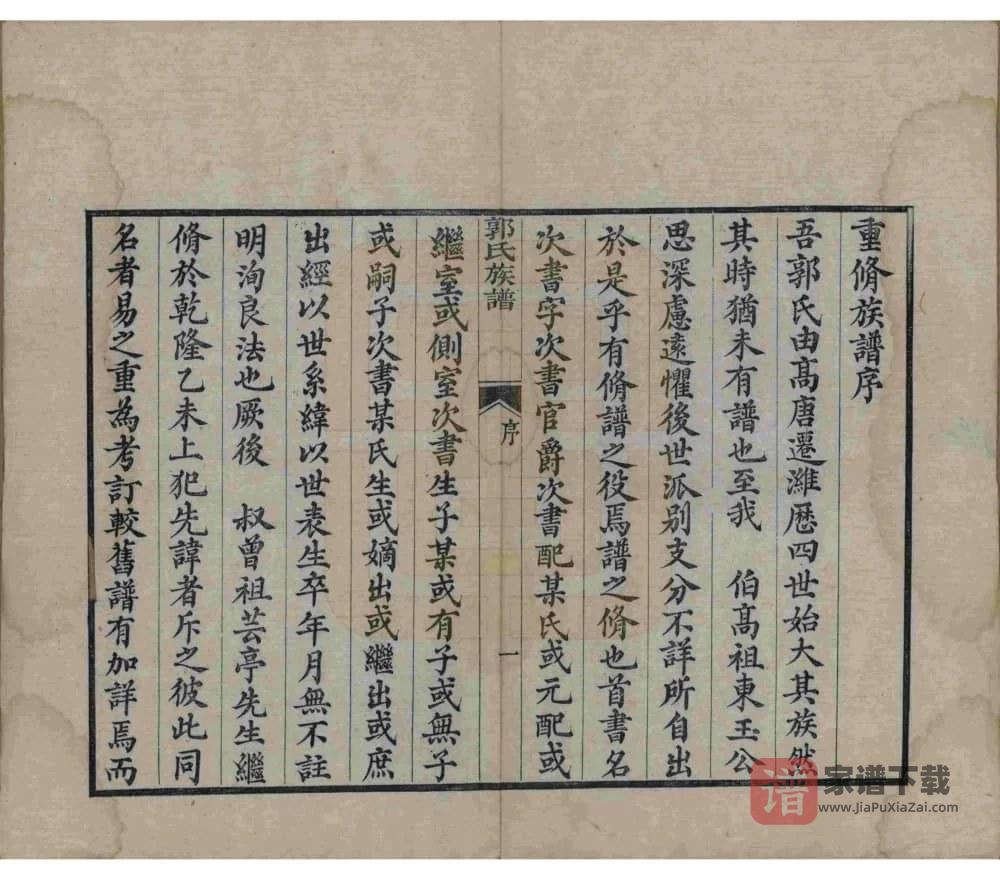 重脩族譜序
吾郭氏由高唐遷濰歷四世始大其族然
其時猶未有譜也至我 伯高祖東玉公
思深慮遠懼後世派别支分不詳所自出
於是乎有脩譜之役焉譜之脩也首書名
次書字次書官爵次書配某氏或元配或
郭氏族譜
序
一
繼室或側室次書生子某或有子或無子
或嗣子次書某氏生或嫡出或繼出或庶
出經以世系緯以世表生卒年月無不註
明洵良法也厥後 叔曾祖芸亭先生繼
脩於乾隆乙未上犯先諱者斥之彼此同
名者易之重為考訂較舊譜有加詳焉而
谱
家谱下载
www.JiaPuXiaZai.com